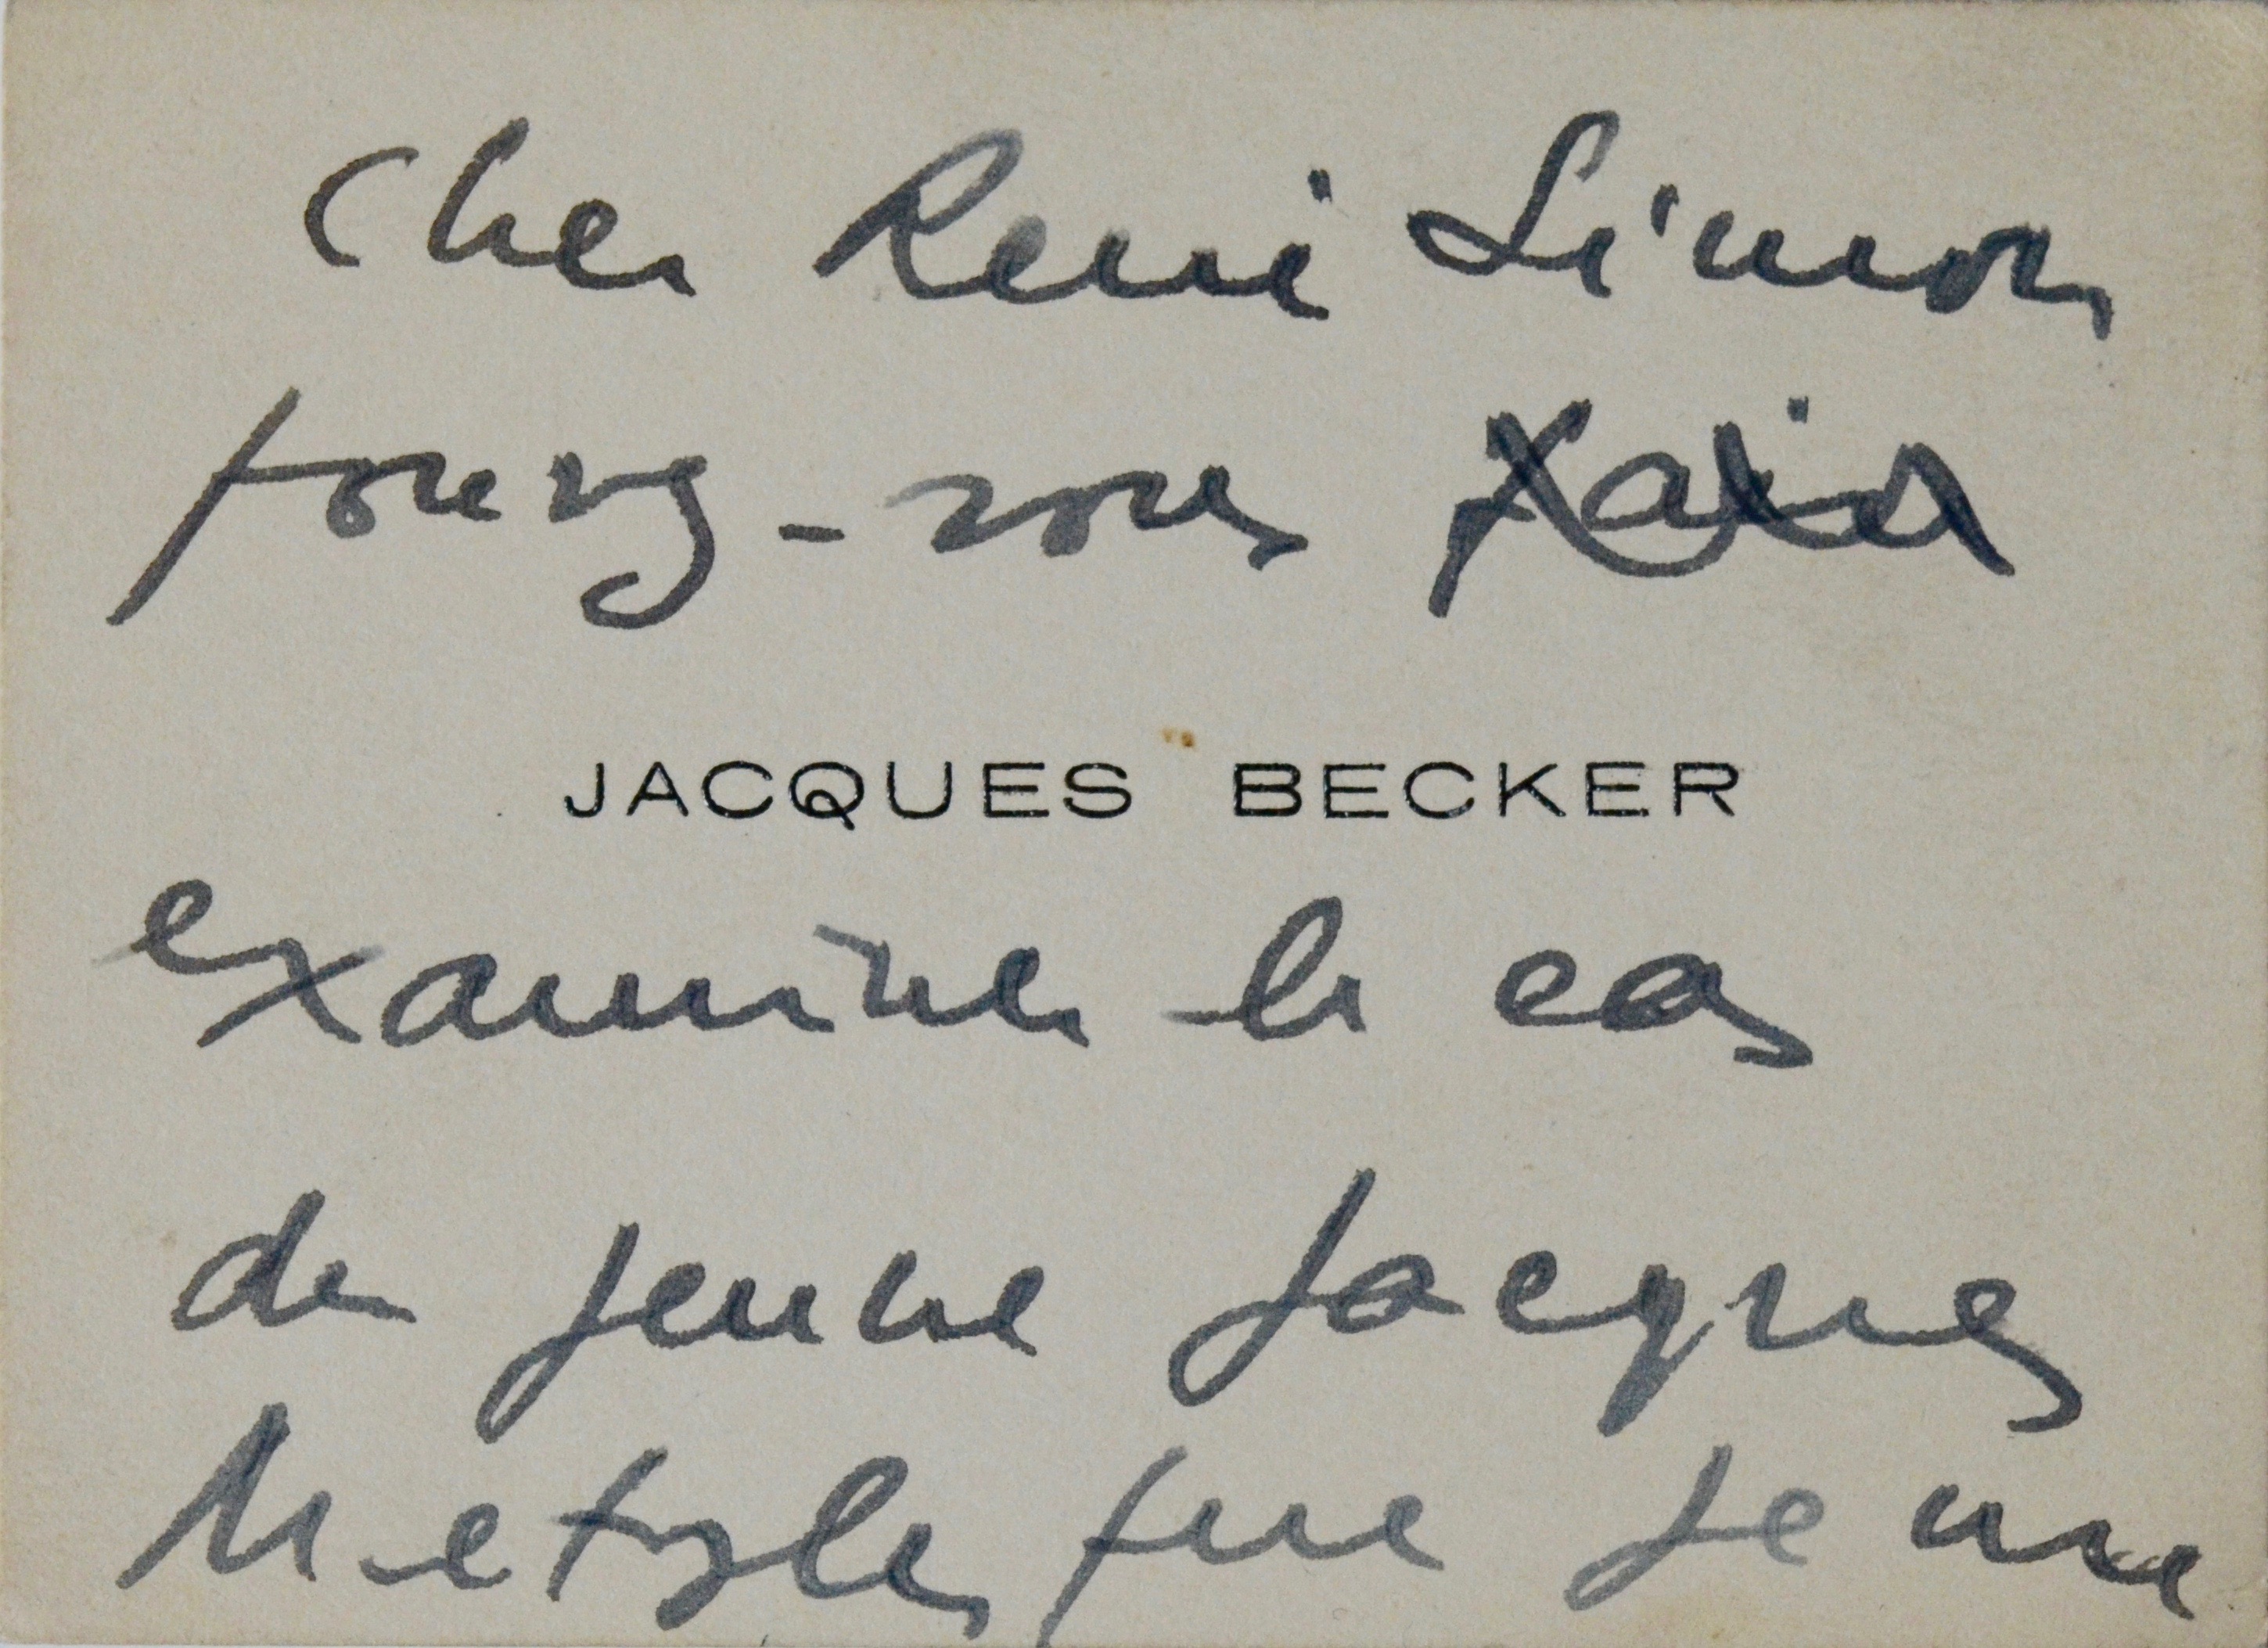 Cher René Simon
pouvez-vous
JACQUES BECKER
examiner le cas
du jeune Jacques
Metzler que je me